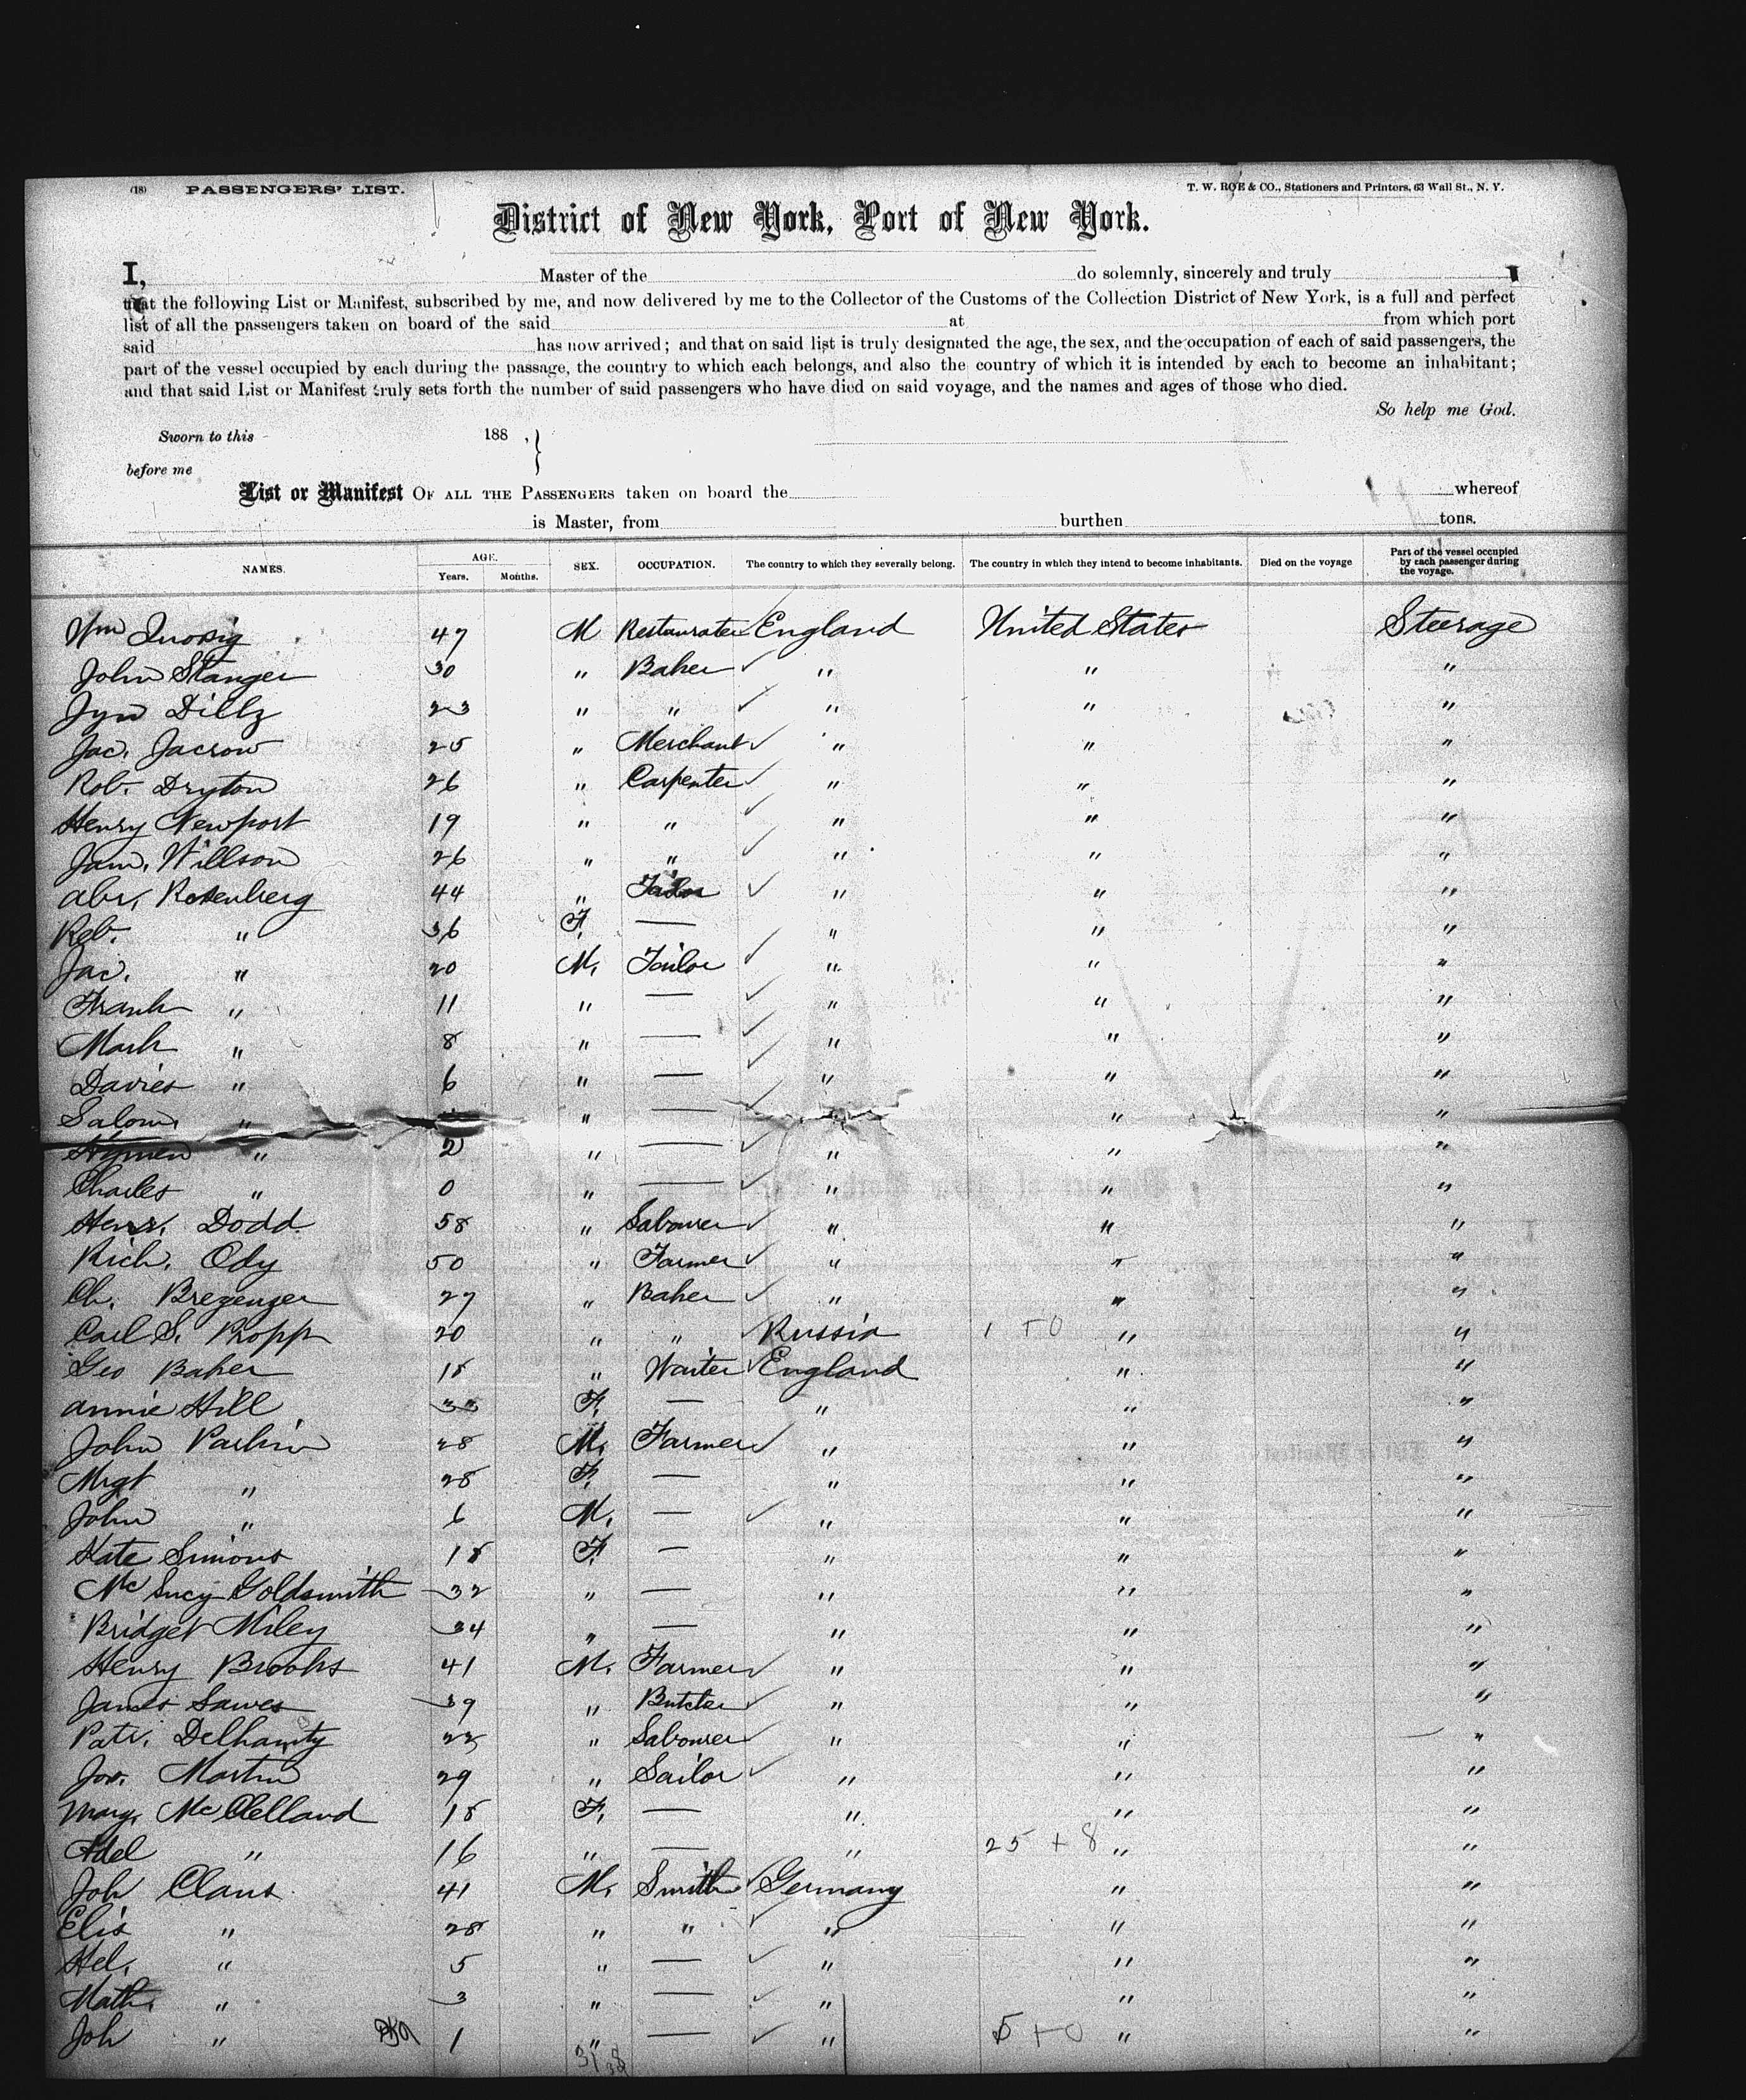 (18) PASSENGERS' LIST. T. W. ROE & CO., Stationers and Printers, 63 Wall St., N. Y.
District of New York, Port of New York.
I, Master of the do solemnly, sincerely and truly
that the following List or Manifest, subscribed by me, and now delivered by me to the Collector of the Customs of the Collection District of New York, is a full and perfect
list of all the passengers taken on board of the said at from which port
said has now arrived; and that on said list is truly designated the age, the sex, and the occupation of each of said passengers, the
part of the vessel occupied by each during the passage, the country to which each belongs, and also the country of which it is intended by each to become an inhabitant;
and that said List or Manifest truly sets forth the number of said passengers who have died on said voyage, and the names and ages of those who died.
So help me God.
Sworn to this 188 , }
before me
List or Manifest OF ALL THE PASSENGERS taken on board the whereof
is Master, from burthen tons.
NAMES. AGE. Years. Months. SEX. OCCUPATION. The country to which they severally belong. The country in which they intend to become inhabitants. Died on the voyage Part of the vessel occupied by each passenger during the voyage.
Wm 47 M England United States Steerage
John Stanger 30 " Baker " " "
Dillz 23 " " " " "
Jac. Jacrow 25 " Merchant " " "
Rob. Dryton 26 " Carpenter " " "
Henry Newport 19 " " " " "
Jam. Willson 26 " " " " "
Abr. Rosenberg 44 " Tailor " " "
Reb. " 36 F. — " " "
Jac. " 20 M. Tailor " " "
Frank " 11 " — " " "
Mark " 8 " — " " "
Davies " 6 " — " " "
Salom. " " — " "
Hymen " 2 " — " " "
Charles " 0 " — " " "
Henr. Dodd 58 " Labourer " " "
Rich. Ody 50 " Farmer " " "
Ch. Bregenzer 27 " Baker " " "
Carl S. Propp 20 " " Russia 1 + 0 " "
Geo Baker 18 " Waiter England " "
Annie Hill 33 F. — " " "
John Parkin 28 M. Farmer " " "
Mrgt " 28 F. — " " "
John " 6 M. — " " "
Kate Simons 18 F. — " " "
Mc Lucy Goldsmith 32 " — " " "
Bridget Miley 34 " — " " "
Henry Brooks 41 M. Farmer " " "
James Lawes 39 " Butcher " " "
Patr. Delhanty 22 " Labourer " " "
Jos. Martin 29 " Sailor " " "
Marg. McClelland 18 F. — " " "
Adel " 16 " — " 25 + 8 " "
Joh Claus 41 M. Smith Germany " "
Elis " 28 " " " " "
Hel. " 5 " — " " "
Math. " 3 " — " " "
Joh " 1 " — " 5 + 0 " "